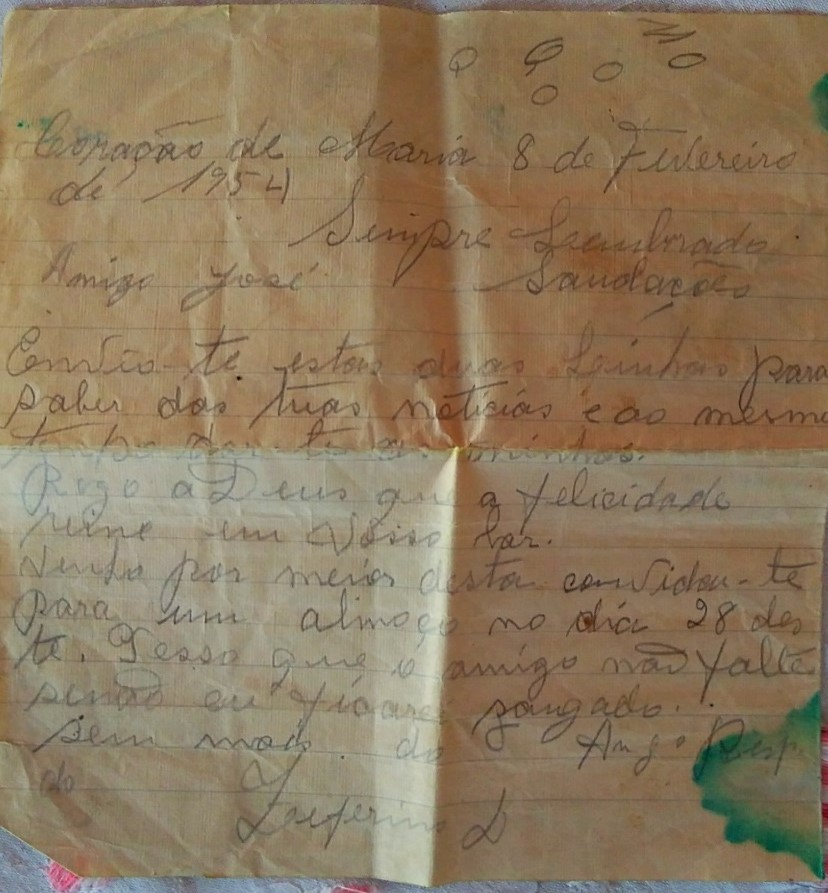 Coração de Maria 8 de Fevereiro
de 1954
Sempre Lembrado
Amigo José Saudações
Envio-te estas duas Leinhas para
saber das tuas noticias e ao mesmo
tempo dar-te as minhas.
Rogo a Deus que a felicidade
reine em Vosso lar.
Venho por meior desta convidar-te
para um almoço no dia 28 des
te. Pesso que o amigo não falte
senão eu ficarei zangado.
sem mais do Amgº Resp.
do
Zeferino D